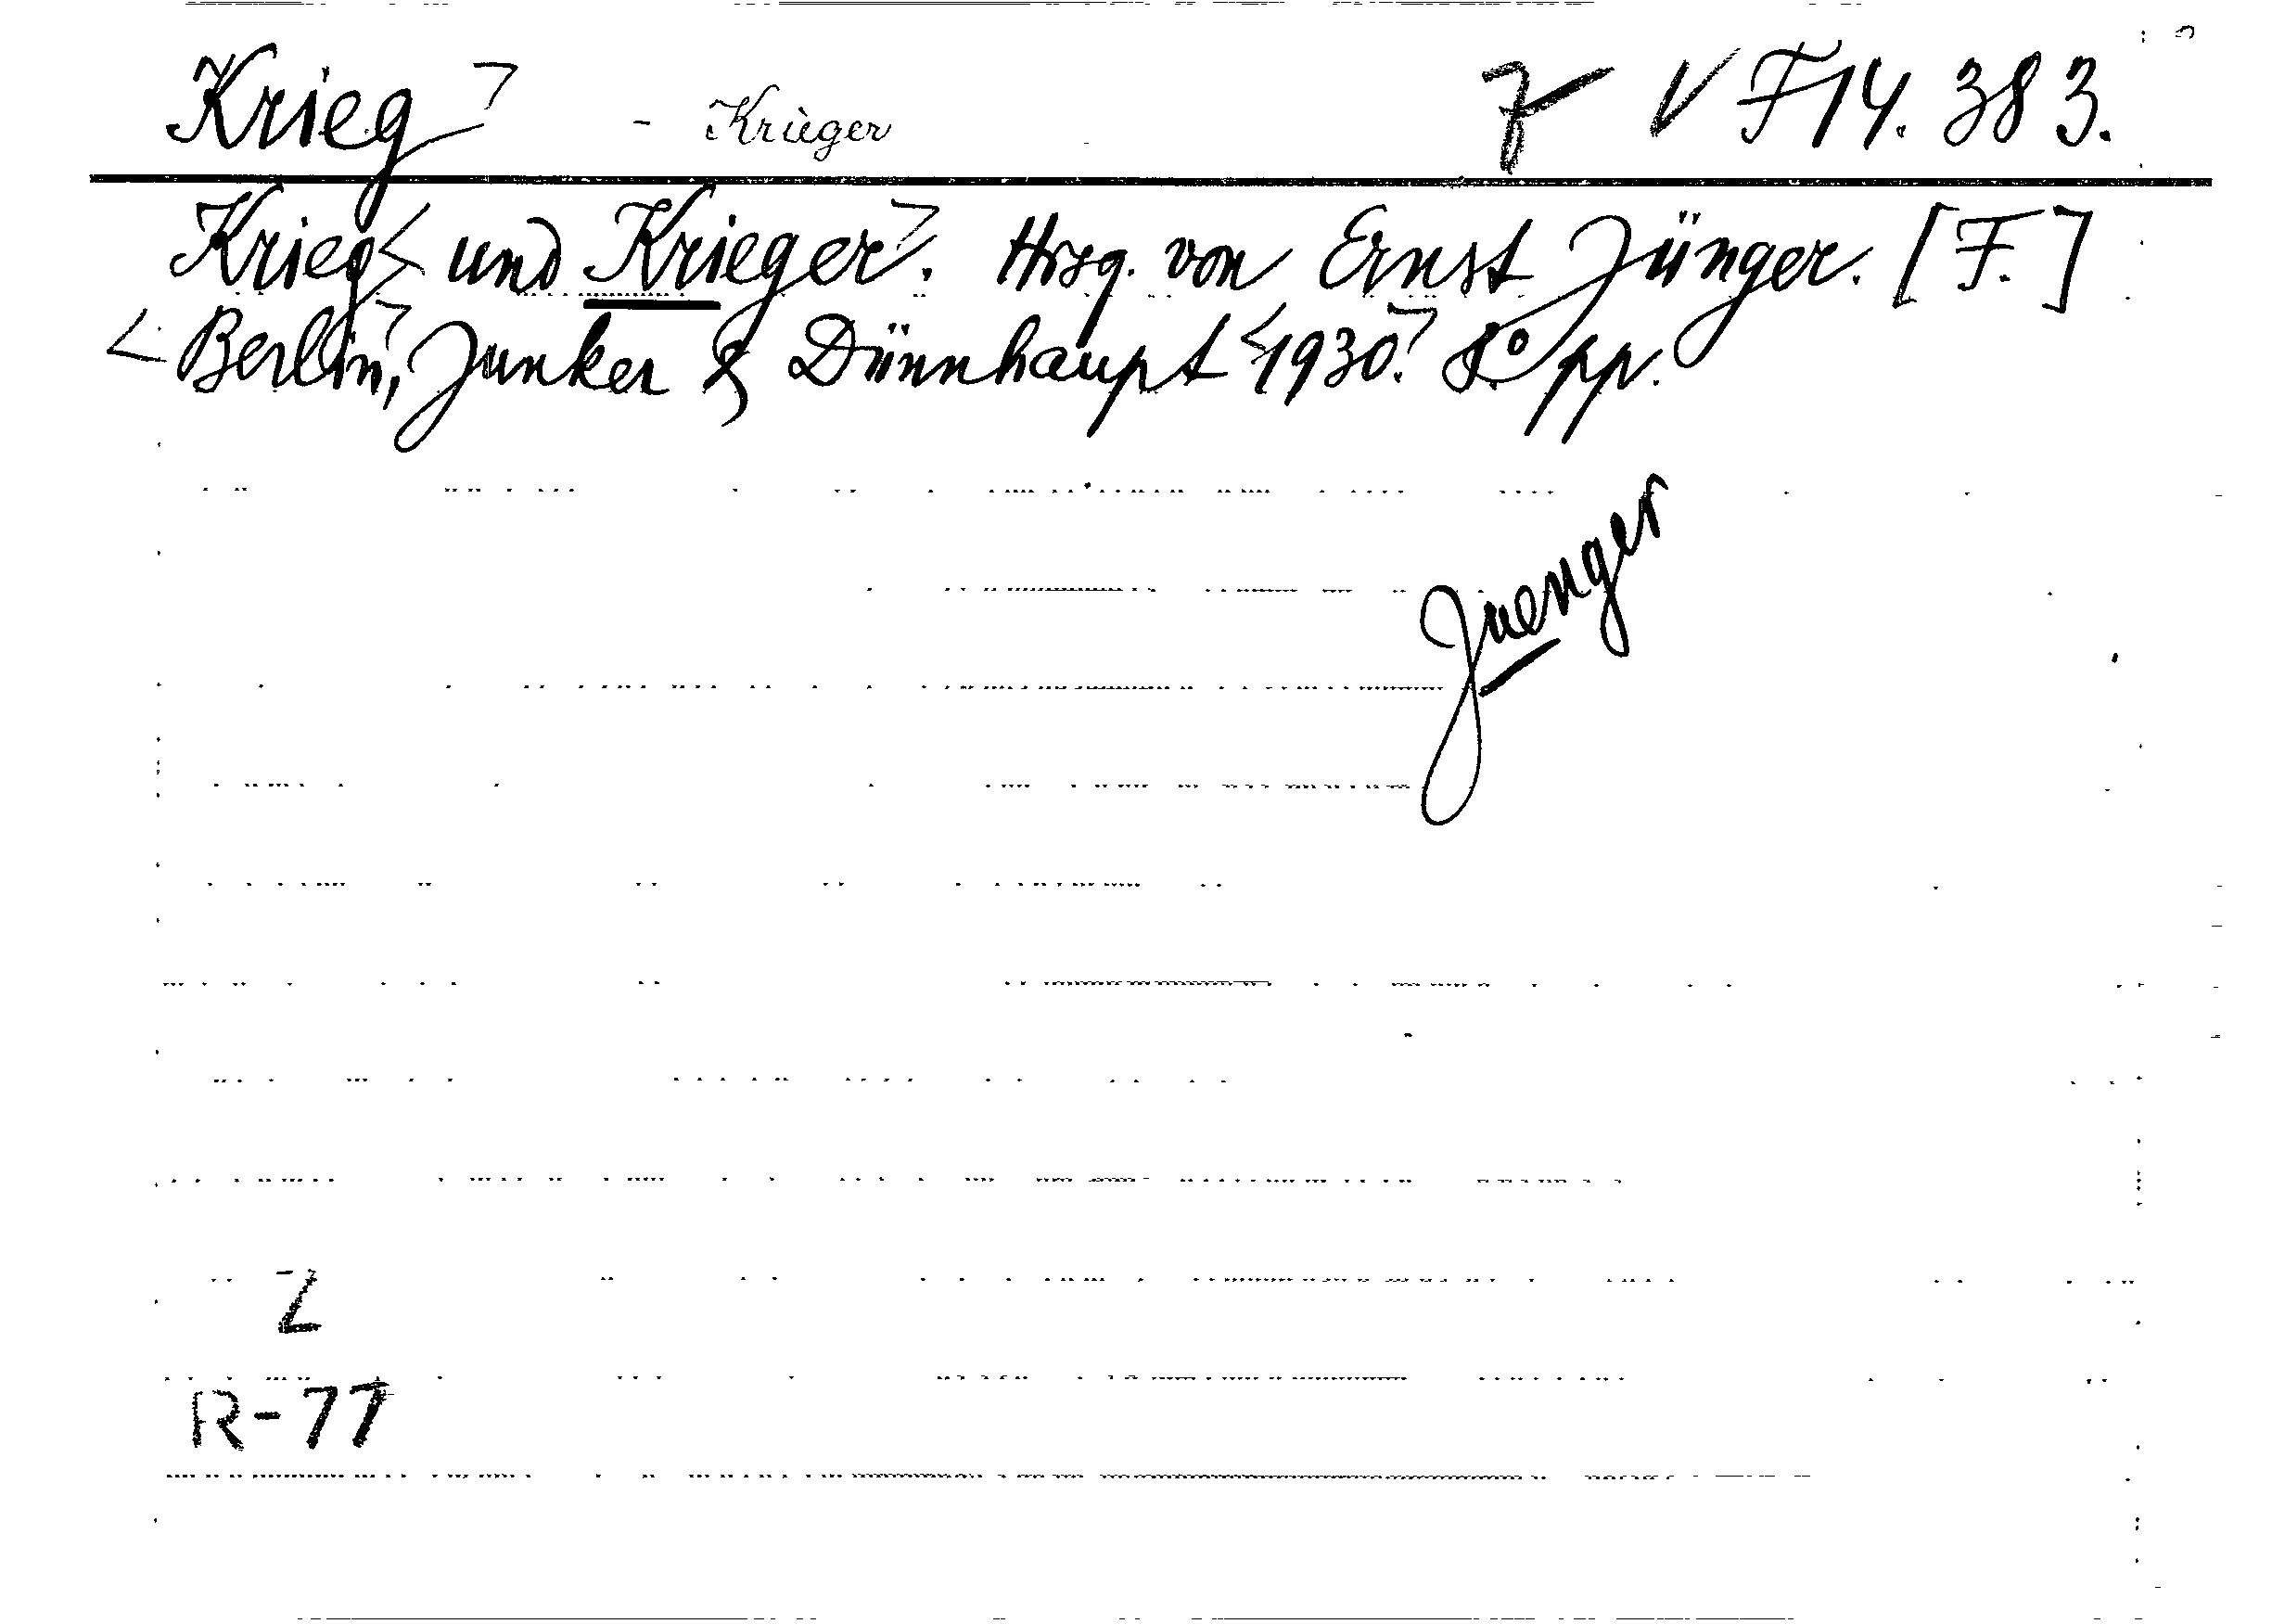 Krieg - Krieger z V F14.383.
Krieg und Krieger. Hrsg. von Ernst Jünger. [F.]
Berlin, Junker & Dünnhaupt 1930. 8° pp.
Juenger
Z
R-77